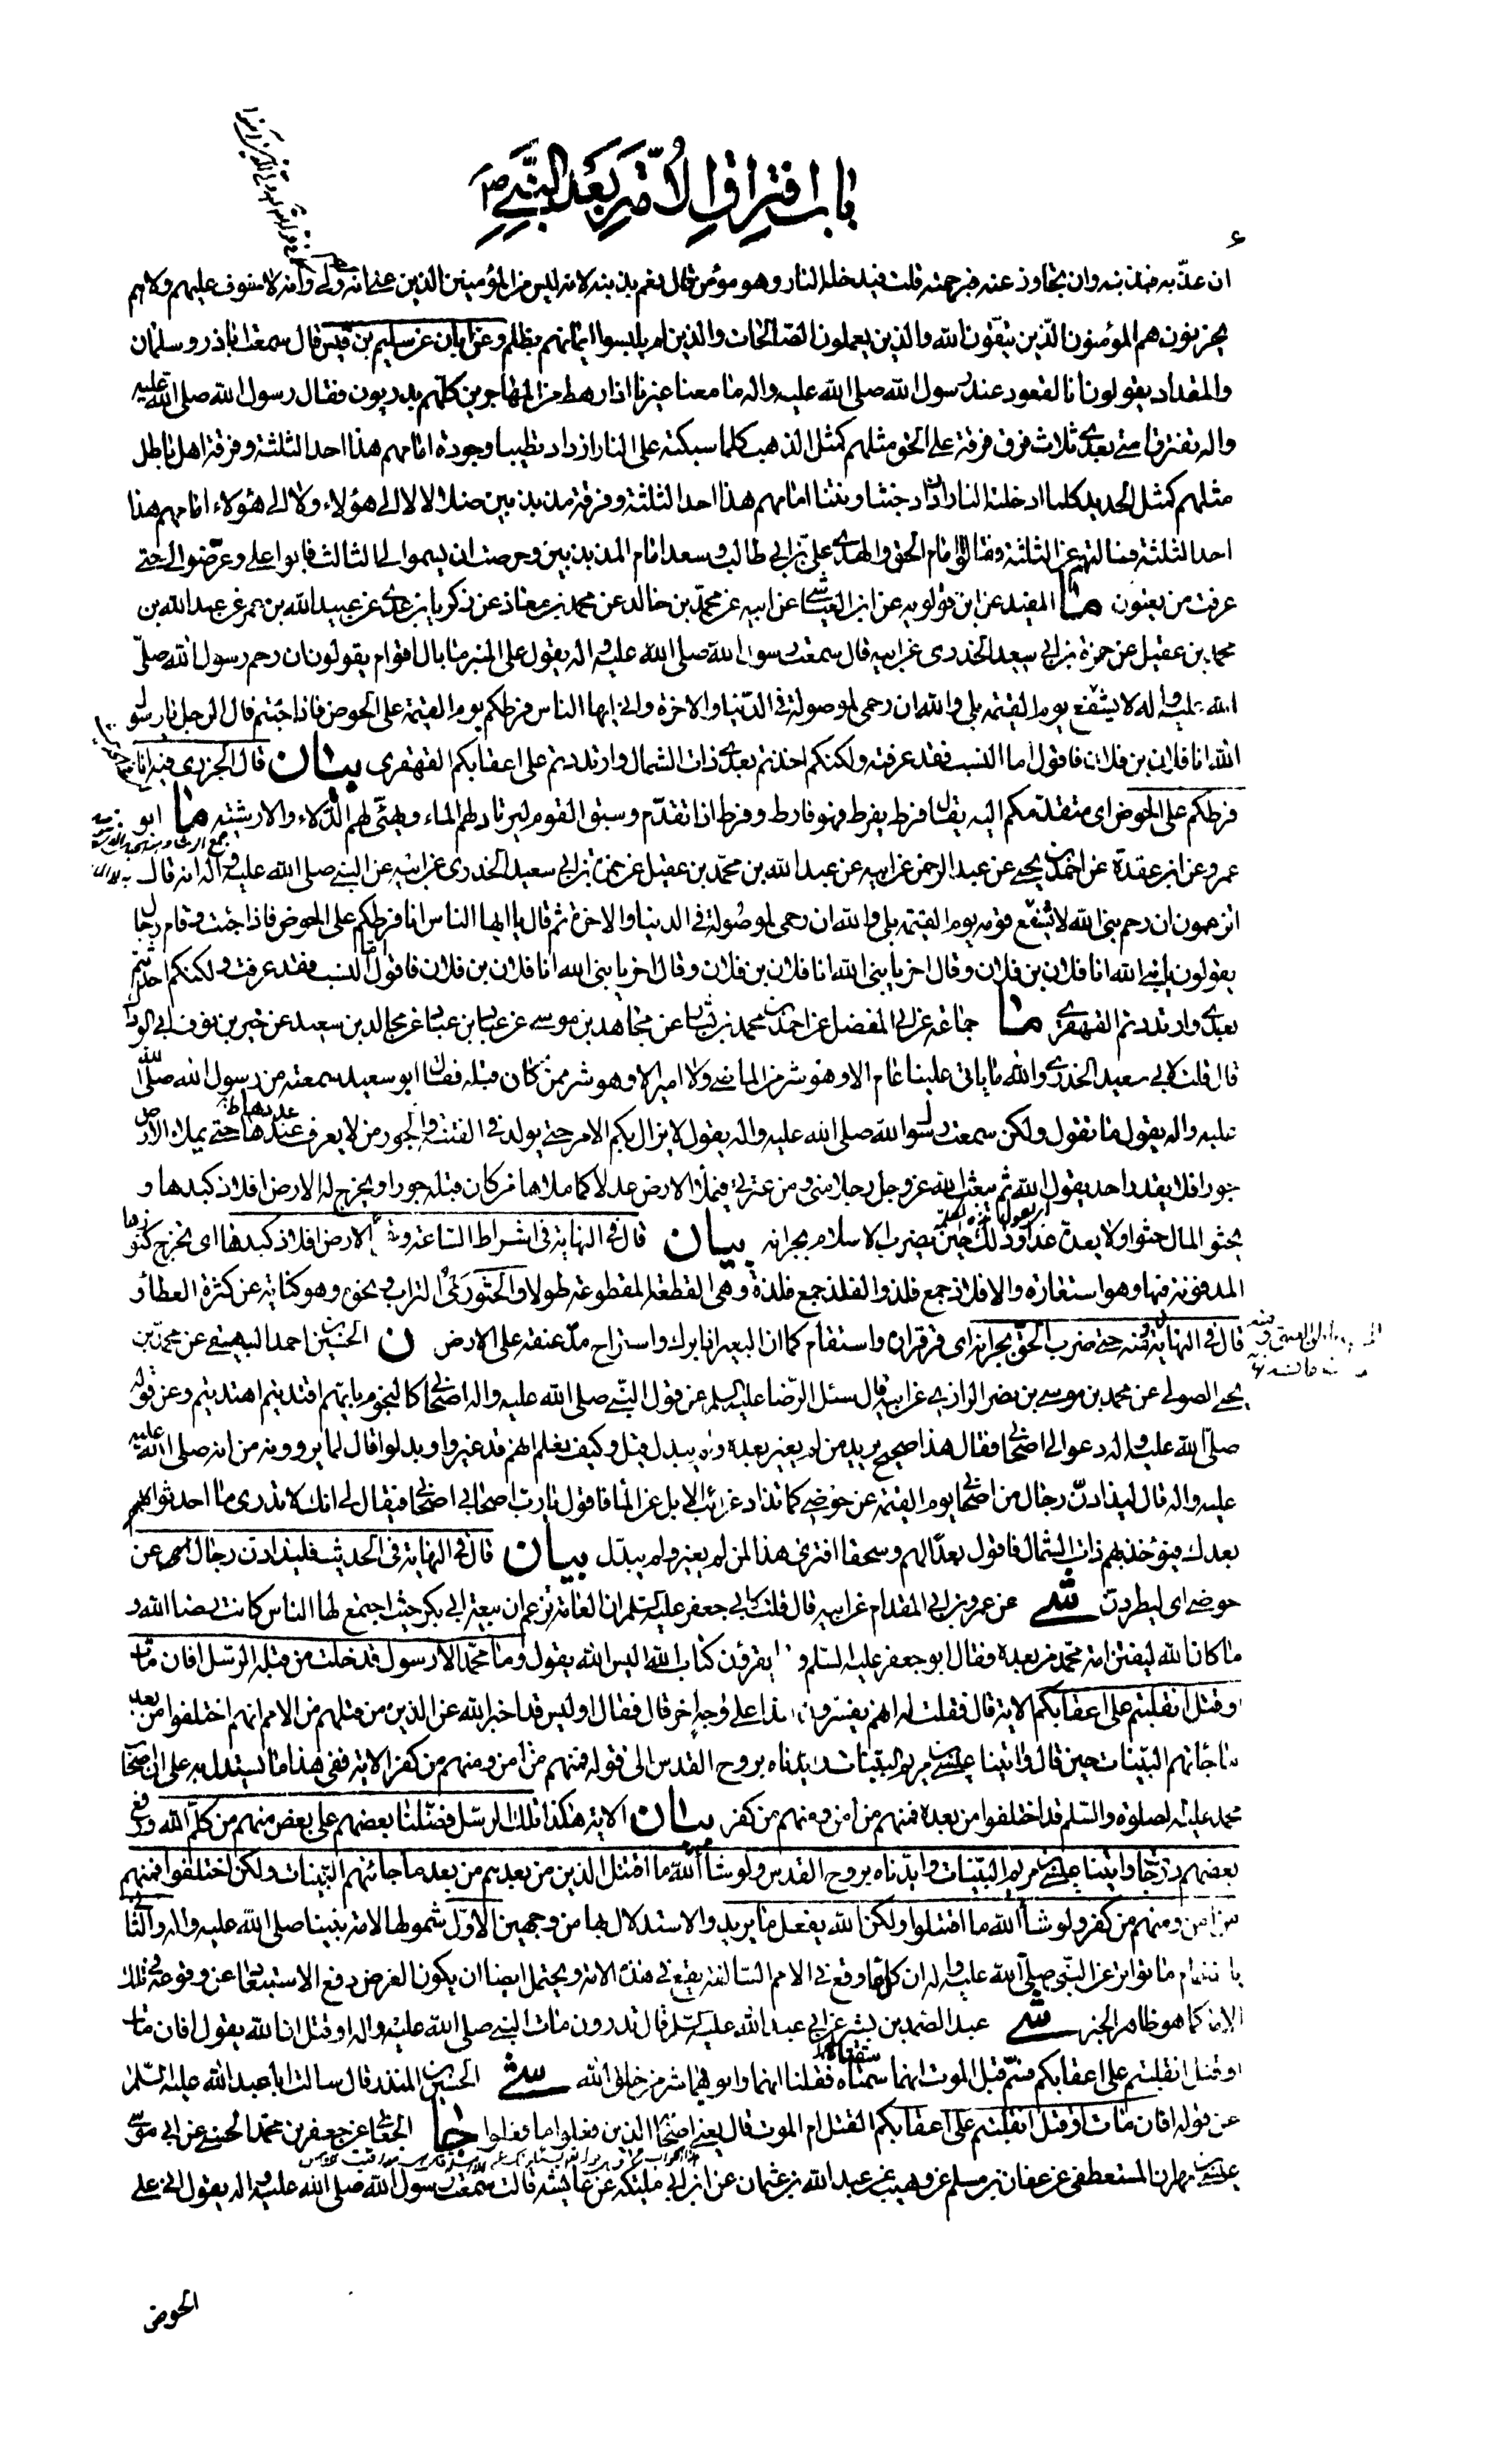 باب افتراق الامة بعد النبي ص
۶
ان عذّبه فبذنبه وان تجاوز عنه فبرحمته قلت فيدخله النار وهو مؤمن قال نعم بذنبه لانه ليس من المؤمنين الذين عنى انه ولى وانه لا خوف عليهم ولا هم
يحزنون هم المؤمنون الّذين يتّقون الله والذين يعملون الصّالحات والذين لم يلبسوا ايمانهم بظلم وعن ابان عن سليم بن قيس قال سمعت اباذر وسلمان
والمقداد يقولون انا لقعود عند رسول الله صلى الله عليه واله ما معنا غيرنا اذا رهط من المهاجرين كلّهم بدريون فقال رسول الله صلى الله عليه
واله تفترق امتي بعدى ثلاث فرق فرقة على الحق مثلهم كمثل الذهب كلما سبكته على النار ازداد طيبا وجودة امامهم هذا احد الثلثة وفرقة اهل باطل
مثلهم كمثل الحديد كلما ادخلته النار ازداد خبثا ونتنا امامهم هذا احد الثلثة وفرقة مذبذبين ضلالا لا الى هؤلاء ولا الى هؤلاء امامهم هذا
احد الثلثة فسالتهم عن الثلثة فقالوا امام الحق والهدى على بن ابي طالب وسعد امام المذبذبين وحرصت ان يسموا لى الثالث فابوا على وعرّضوا لى حتى
عرفت من يعنون ما المفيد عن ابن قولويه عن ابن العياشى عن ابيه عن محمّد بن خالد عن محمد بن معاذ عن زكريا بن عدى عن عبيد الله بن عمر عن عبد الله بن
محمد بن عقيل عن حمزة بن ابي سعيد الخدرى عن ابيه قال سمعت رسول الله صلى الله عليه واله يقول على المنبر ما بال اقوام يقولون ان رحم رسول الله صلّى
الله عليه واله لا يشفع يوم القيمة بلى والله ان رحمى لموصولة فى الدّنيا والاخرة وانى ايها الناس فرطكم يوم القيمة على الحوض فاذا جئتم قال الرجل يا رسول
الله انا فلان بن فلان فاقول اما النسب فقد عرفته ولكنكم اخذتم بعدى ذات الشمال وارتددتم على اعقابكم القهقرى بيان قال الجزرى فيه انا
فرطكم على الحوض اى متقدّمكم اليه يقال فرط يفرط فهو فارط وفرط اذا تقدّم وسبق القوم ليرتاد لهم الماء ويهيّئ لهم الدّلاء والارشية ما ابو
عمرو عن ابن عقدة عن احمد بن يحيى عن عبد الرحمن عن ابيه عن عبد الله بن محمّد بن عقيل عن حمزة بن ابي سعيد الخدرى عن ابيه عن النبى صلى الله عليه واله انه قال
اتزعمون ان رحم نبى الله لا يشفع قومه يوم القيمة بلى والله ان رحمى لموصولة فى الدنيا والاخرة ثم قال يا ايها الناس انا فرطكم على الحوض فاذا جئت وقام رجال
يقولون يا نبى الله انا فلان بن فلان وقال اخر يا نبى الله انا فلان بن فلان وقال اخر يا نبى الله انا فلان بن فلان فاقول اما النسب فقد عرفت ولكنكم احدثتم
بعدى وارتددتم القهقرى ما جماعة عن ابى المفضل عن احمد بن محمد بن بشار عن مجاهد بن موسى عن عباد بن عباد عن مجالد بن سعيد عن جبير بن نوف ابى الوداك
قال قلت لابى سعيد الخدرى والله ما ياتى علينا عام الا وهو شر من الماضى ولا امير الا وهو شر ممن كان قبله فقال ابو سعيد سمعته من رسول الله صلى الله
عليه واله يقول ما تقول ولكن سمعت رسول الله صلى الله عليه واله يقول لا يزال بكم الامر حتى يولد فى الفتنة والجور من لا يعرف عددها حتى يملا الارض
جورا فلا يقدر احد يقول الله ثم يبعث الله عز وجل رجلا منى ومن عترتى فيملا الارض عدلا كما ملاها من كان قبله جورا ويخرج له الارض افلاذ كبدها و
يحثو المال حثوا ولا يعدّه عدا وذلك حين يضرب الاسلام بجرانه بيان قال فى النهاية فى اشراط الساعة وتقئ الارض افلاذ كبدها اى تخرج كنوزها
المدفونة فيها وهو استعارة والافلاذ جمع فلذ والفلذ جمع فلذة وهى القطعة المقطوعة طولا والحثو رمى التراب ونحوه وهو كناية عن كثرة العطاء و
قال فى النهاية ومنه حتى ضرب الحقّ بجرانه اى قر قراره واستقام كما ان البعير اذا برك واستراح مدّ عنقه على الارض ن الحسين بن احمد البيهقى عن محمّد بن
يحيى الصولى عن محمد بن موسى بن نصر الرازى عن ابيه قال سئل الرّضا عليه السلم عن قول النّبى صلى الله عليه واله اصحابى كالنجوم بايّهم اقتديتم اهتديتم وعن قوله
صلّى الله عليه واله دعوا لى اصحابى فقال هذا صحيح يريد من لم يغير بعده ولم يبدل قيل وكيف نعلم انهم قد غيروا وبدلوا قال لما يروونه من انه صلى الله عليه
عليه واله قال ليذادنّ رجال من اصحابى يوم القيمة عن حوضى كما تذاد غرائب الابل عن الماء فاقول يا ربّ اصحابى اصحابى فيقال لى انك لا تدرى ما احدثوا
بعدك فيؤخذ بهم ذات الشمال فاقول بعدًا لهم وسحقا افترى هذا لمن لم يغير ولم يبدّل بيان قال فى النهاية فى الحديث فليذادن رجال عن
حوضى اى ليطردن شى عن عمرو بن ابى المقدام عن ابيه قال قلت لابى جعفر عليه السلم ان العامة تزعم ان بيعة ابى بكر حيث اجتمع لها الناس كانت رضا لله و
ما كان الله ليفتن امة محمّد من بعده فقال ابو جعفر عليه السلم وما يقرؤن كتاب الله اليس الله يقول وما محمّد الا رسول قد خلت من قبله الرّسل افان مات
او قتل انقلبتم على اعقابكم الاية قال فقلت له انهم يفسّرون هذا على وجه اخر قال فقال او ليس قد اخبر الله عن الذين من قبلهم من الامم انهم اختلفوا من بعد
ما جائتهم البيّنات حين قال واتينا عيسى بن مريم البيّنات وايدناه بروح القدس الى قوله فمنهم من امن ومنهم من كفر الاية ففى هذا ما يستدل به على ان اصحاب
محمد عليه الصلوة والسّلم قد اختلفوا من بعده فمنهم من امن ومنهم من كفر بيان الاية هكذا تلك الرسل فضّلنا بعضهم على بعض منهم من كلّم الله ورفع
بعضهم درجات واتينا عيسى بن مريم البيّنات وايّدناه بروح القدس ولو شاء الله ما اقتتل الذين من بعدهم من بعد ما جائتهم البيّنات ولكن اختلفوا فمنهم
من امن ومنهم من كفر ولو شاء الله ما اقتتلوا ولكن الله يفعل ما يريد والاستدلال بها من وجهين الاوّل شمولها لامة نبينا صلى الله عليه واله والثانى
بانضمام ما تواتر عن النبى صلى الله عليه واله ان كلّما وقع فى الامم السالفة يقع فى هذه الامة ويحتمل ايضا ان يكون الغرض دفع الاستبعاد عن وقوعه فى تلك
الامة كما هو ظاهر الخبر شى عبد الصّمد بن بشير عن ابى عبد الله عليه السلم قال تدرون مات النبى صلى الله عليه واله او قتل ان الله يقول افان مات
او قتل انقلبتم على اعقابكم فسمّ قبل الموت انهما سمتاه فقلنا انهما وابويهما شر من خلق الله شى الحسين بن المنذر قال سالت ابا عبد الله عليه السّلم
عن قوله افان مات او قتل انقلبتم على اعقابكم القتل ام الموت قال يعنى اصحابه الذين فعلوا ما فعلوا جا الجعابى عن جعفر بن محمّد الحسنى عن ابى موسى
عيسى بن مهران المستعطفى عن عفان بن مسلم عن وهيب عن عبد الله بن عثمان عن ابن ابى مليكة عن عايشة قالت سمعت رسول الله صلى الله عليه واله يقول انى على
الحوض